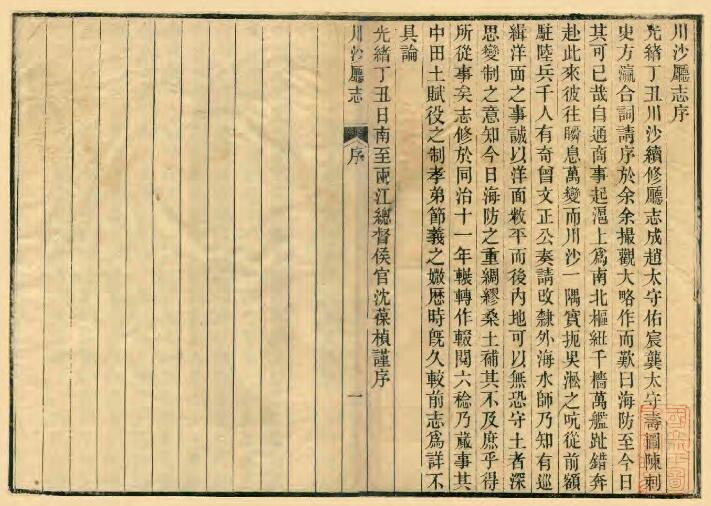 川沙廳志序
光緒丁丑川沙續修廳志成趙太守佑宸龔太守壽圖陳刺
史方瀛合詞請序於余余撮觀大略作而歎曰海防至今日
其可已哉自通商事起滬上為南北樞紐千檣萬艦趾錯奔
赴此來彼往瞬息萬變而川沙一隅實扼吳淞之吭從前額
駐陸兵千人有奇曾文正公奏請改隸外海水師乃知有巡
緝洋面之事誠以洋面敉平而後內地可以無恐守土者深
思變制之意知今日海防之重綢繆桑土補其不及庶乎得
所從事矣志修於同治十一年輾轉作輟閱六稔乃蕆事其
中田土賦役之制孝弟節義之媺歷時既久較前志為詳不
具論
光緒丁丑日南至兩江總督侯官沈葆楨謹序
川沙廳志
序
一